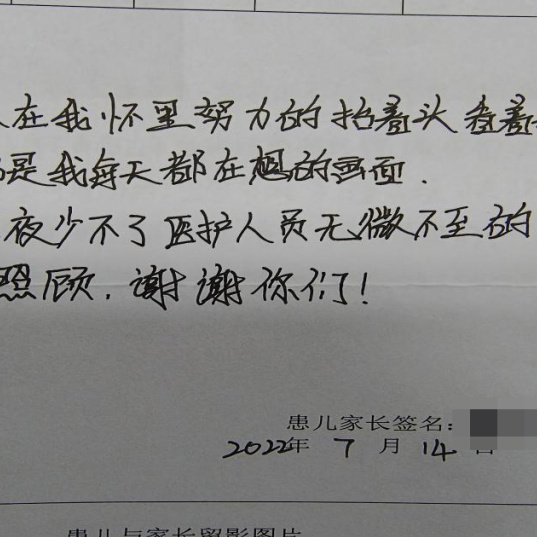 在我怀里努力的抬着头看着
是我每天都在想的画面.
夜少不了医护人员无微不至的
照顾.谢谢你们!
患儿家长签名:
2022年 7 月 14 日
患儿与家长留影图片